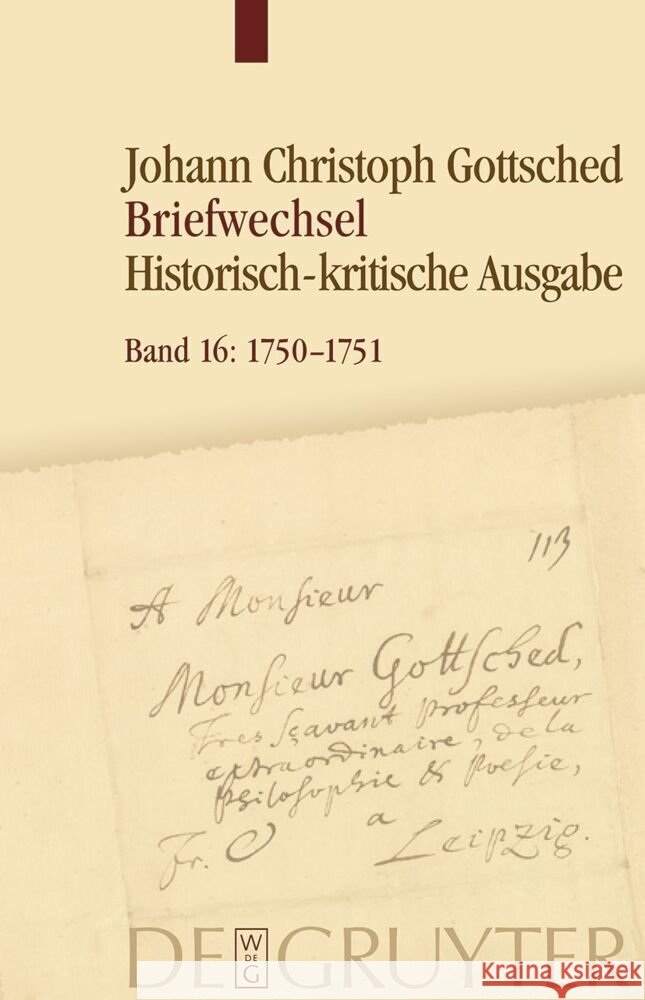 Johann Christoph Gottsched
Briefwechsel
Historisch-kritische Ausgabe
Band 16: 1750–1751
113
A Monsieur
Monsieur Gottsched,
Tres sçavant professeur
extraordinaire, de la
philosophie & Poesie,
Fr. a Leipzig.
DE GRUYTER
W
DE
G
kraina książek